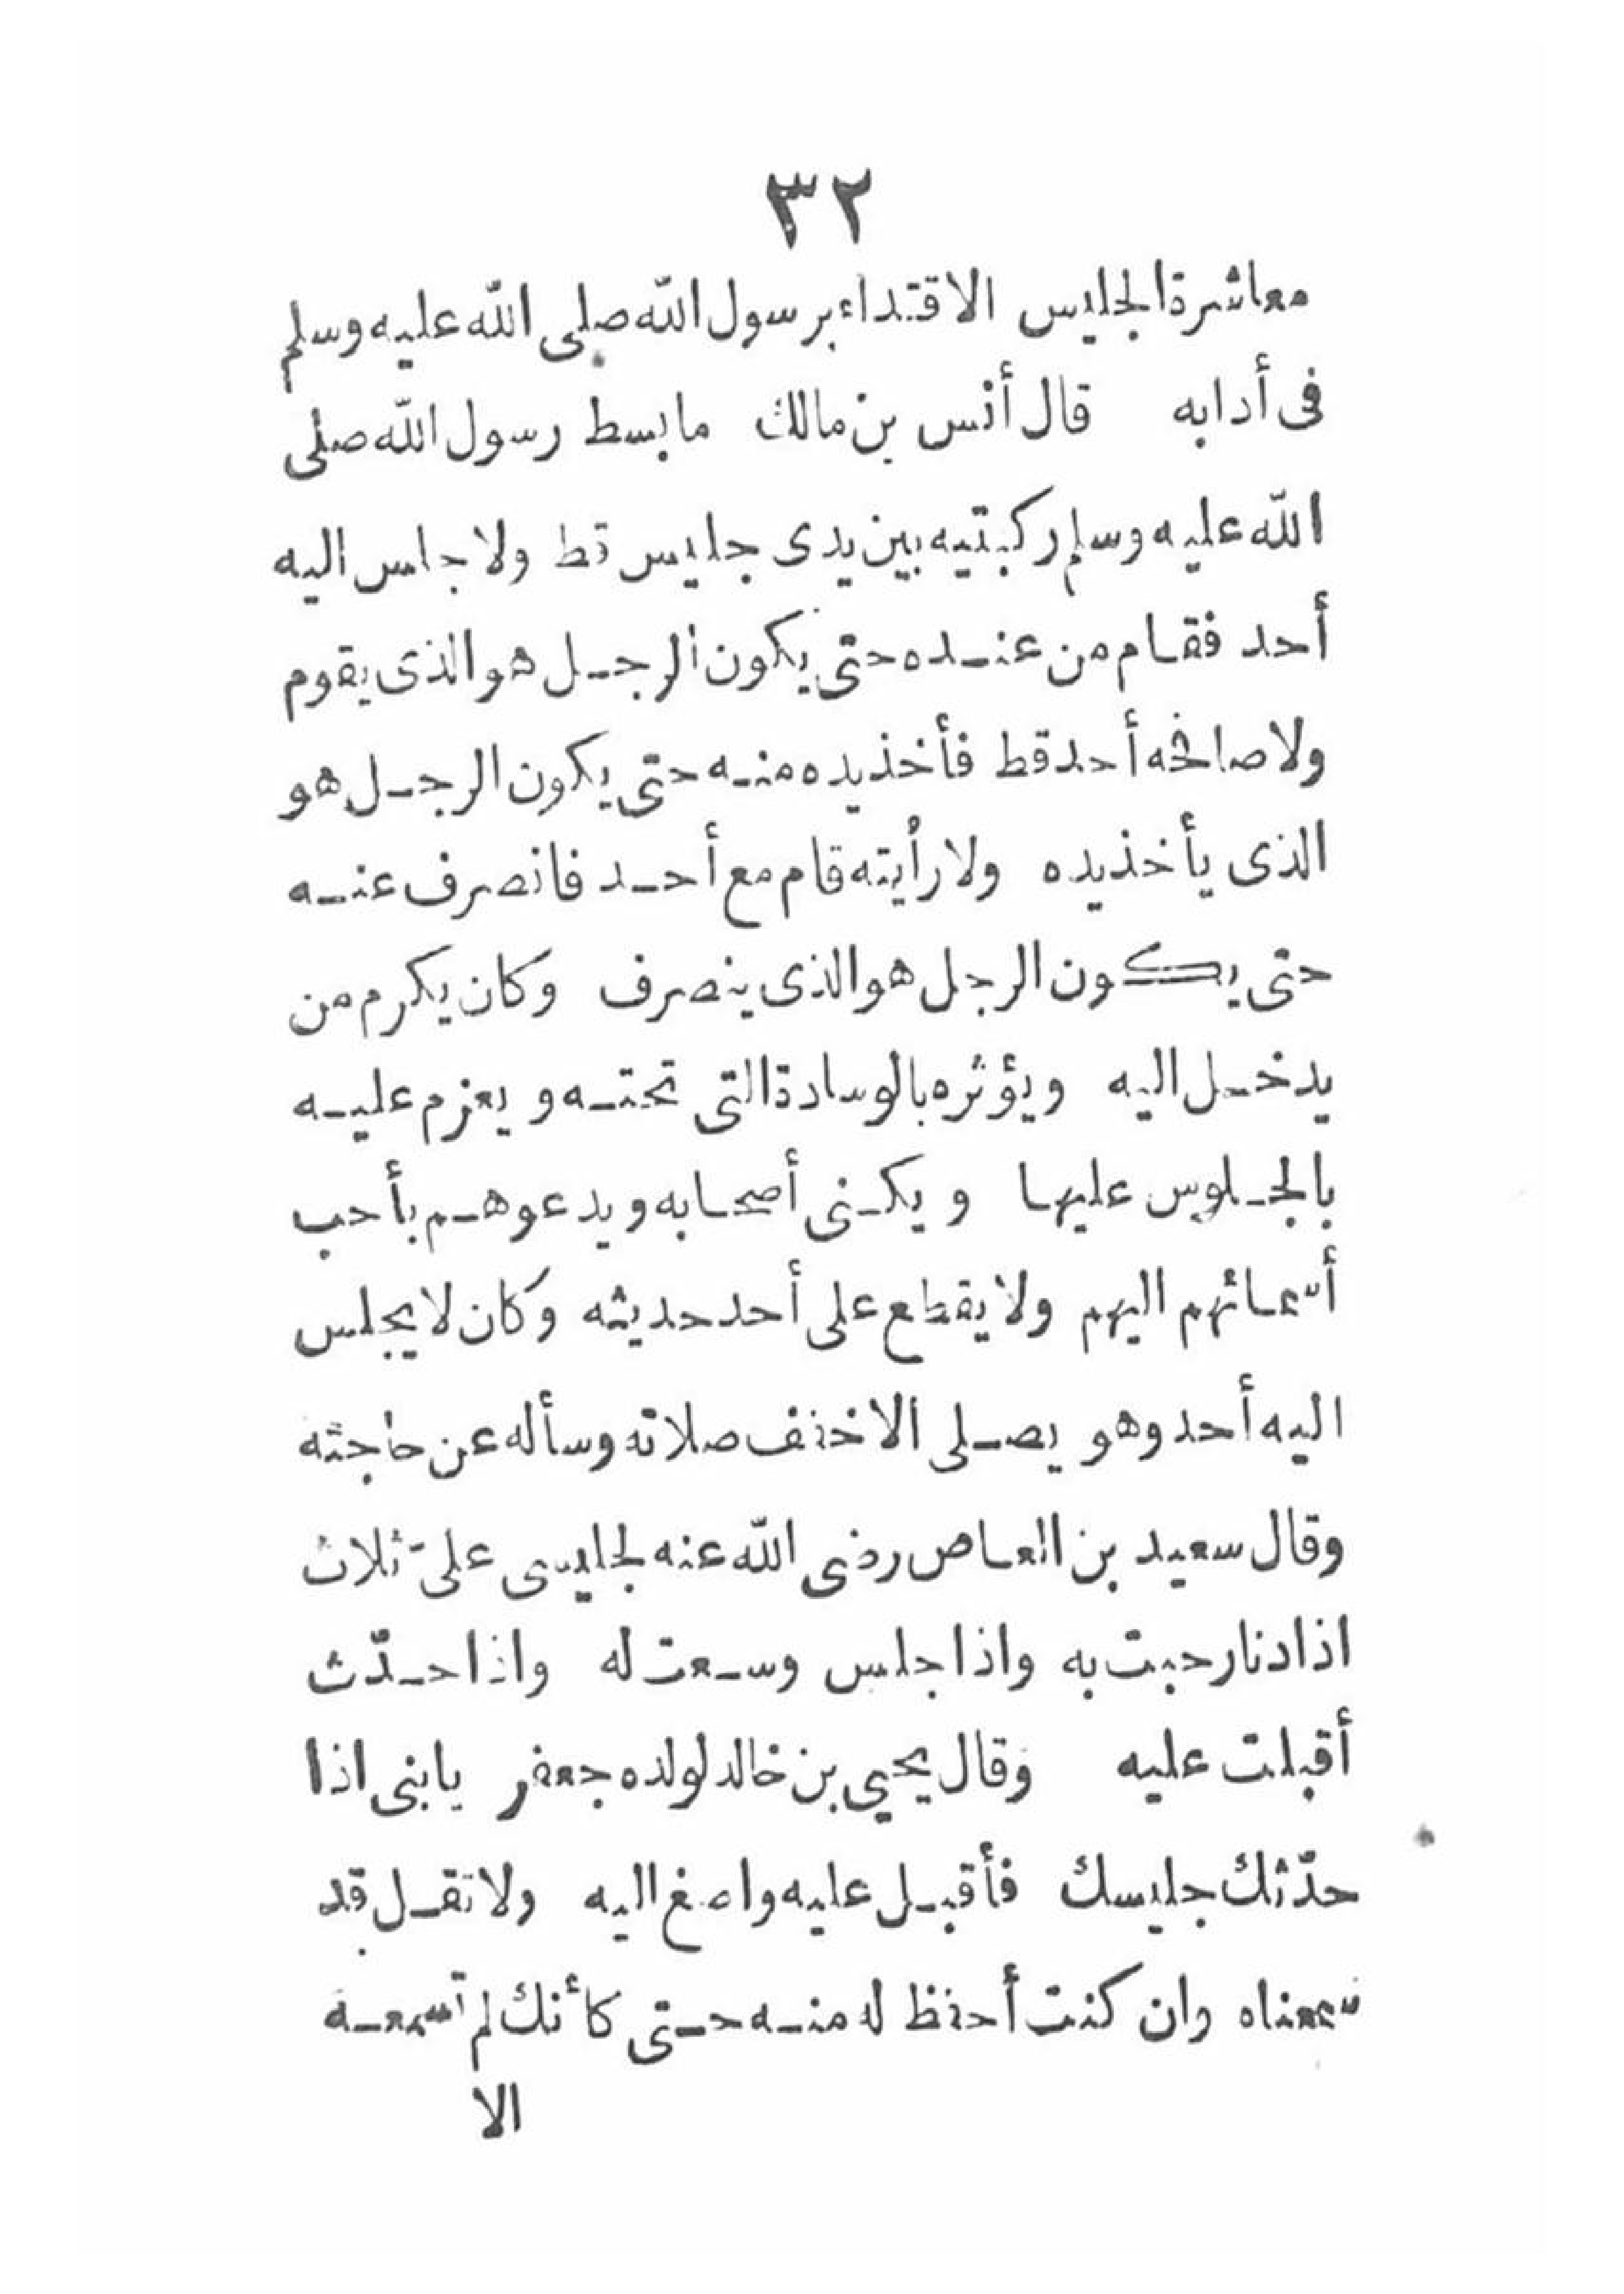 ٣٢
معاشرة الجليس الاقتداء برسول الله صلى الله عليه وسلم
فى أدابه قال أنس بن مالك ما بسط رسول الله صلى
الله عليه وسلم ركبتيه بين يدى جليس قط ولا جلس اليه
أحد فقام من عنده حتى يكون الرجل هو الذى يقوم
ولا صافحه أحد قط فأخذ يده منه حتى يكون الرجل هو
الذى يأخذ يده ولا رأيته قام مع أحد فانصرف عنه
حتى يكون الرجل هو الذى ينصرف وكان يكرم من
يدخل اليه ويؤثره بالوسادة التى تحته و يعزم عليه
بالجلوس عليها و يكنى أصحابه و يدعوهم بأحب
أسمائهم اليهم ولا يقطع على أحد حديثه وكان لا يجلس
اليه أحد وهو يصلى الا خفف صلاته وسأله عن حاجته
وقال سعيد بن العاص رضى الله عنه لجليسى علىّ ثلاث
اذا دنا رحبت به واذا جلس وسعت له واذا حدّث
أقبلت عليه وقال يحيي بن خالد لولده جعفر يا بنى اذا
حدّثك جليسك فأقبل عليه واصغ اليه ولا تقل قد
سمعناه وان كنت أحفظ له منه حتى كأنك لم تسمعه
الا